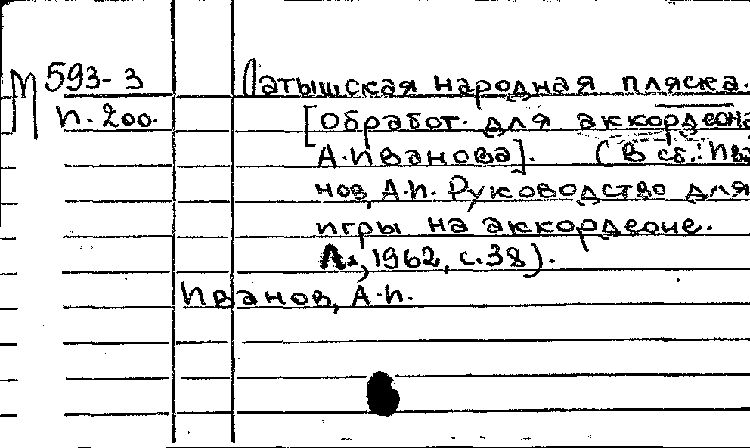 М 593-3
п. 200.
Латышская народная пляска.
[Обработ. для аккордеона
А. Иванова]. (В сб.: Ива
нов, А.П. Руководство для
игры на аккордеоне.
Л., 1962, с. 38).
Иванов, А.П.